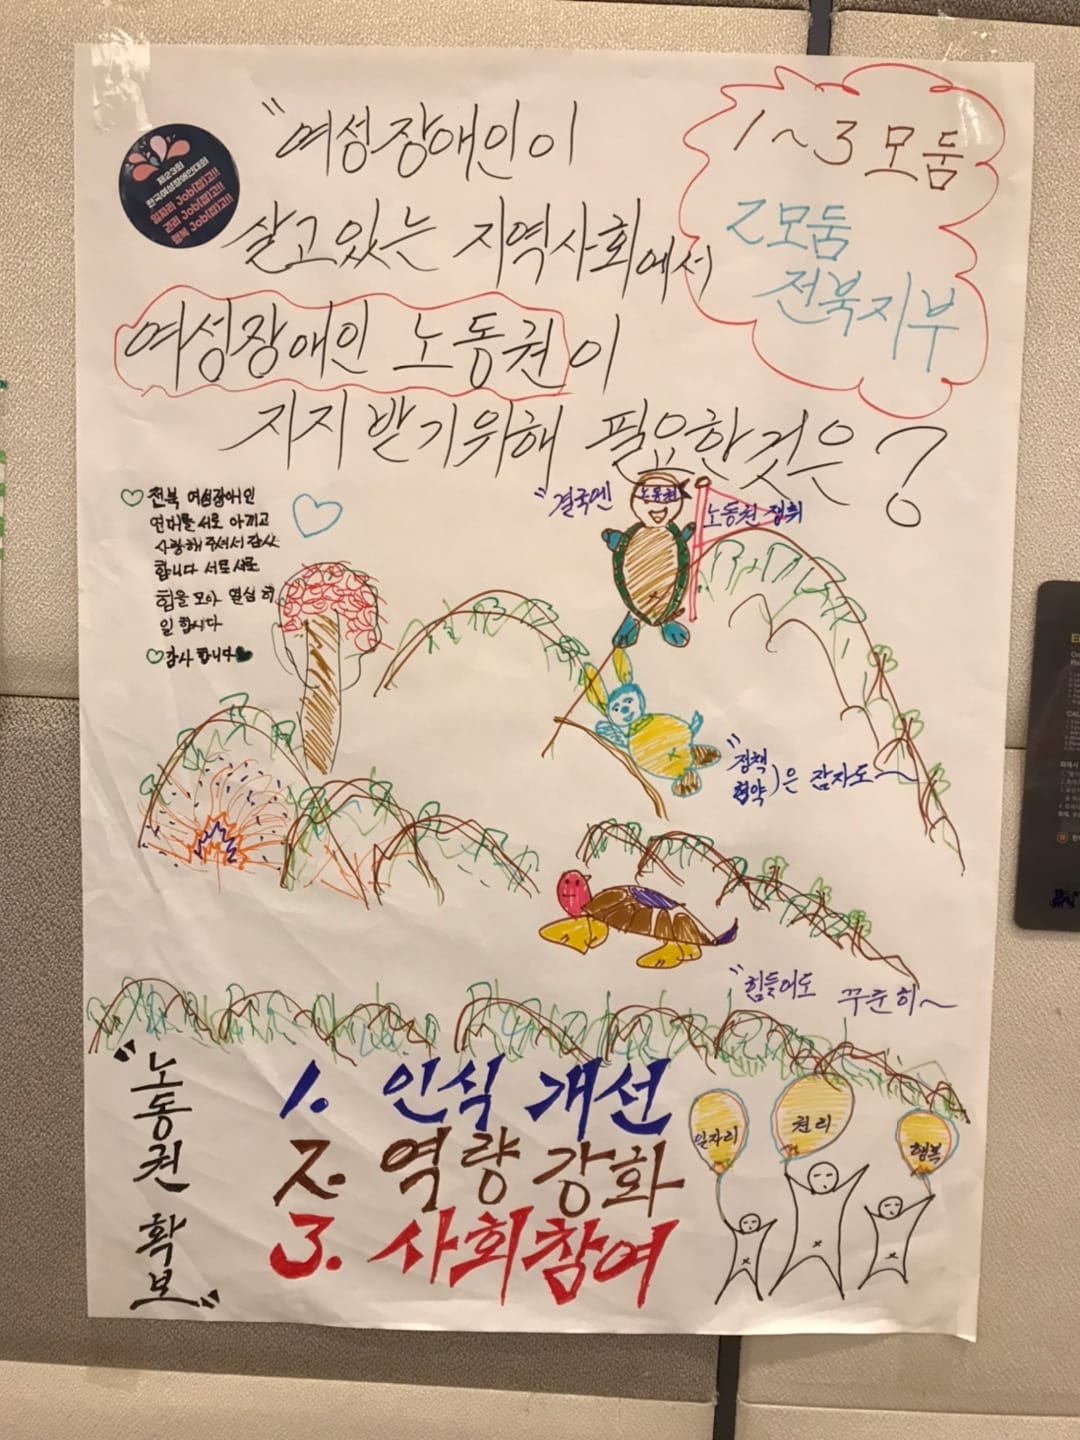 "여성장애인이
살고있는 지역사회에서
여성장애인 노동권이
지지받기위해 필요한것은?
1~3모둠
2모둠
전북지부
제23회
한국여성장애인대회
일자리 Job(잡)고!!
권리 Job(잡)고!!
행복 Job(잡)고!!
전북 여성장애인
연대를 서로 아끼고
사랑해 주셔서 감사
합니다 서로서로
힘을 모아 열심히
일합시다
감사합니다
"결국엔
노동권
노동권 쟁취
"정책
협약)은 잠자도~
"힘들어도 꾸준히~
"노동권 확보"
1. 인식 개선
2. 역량 강화
3. 사회참여
일자리
권리
행복